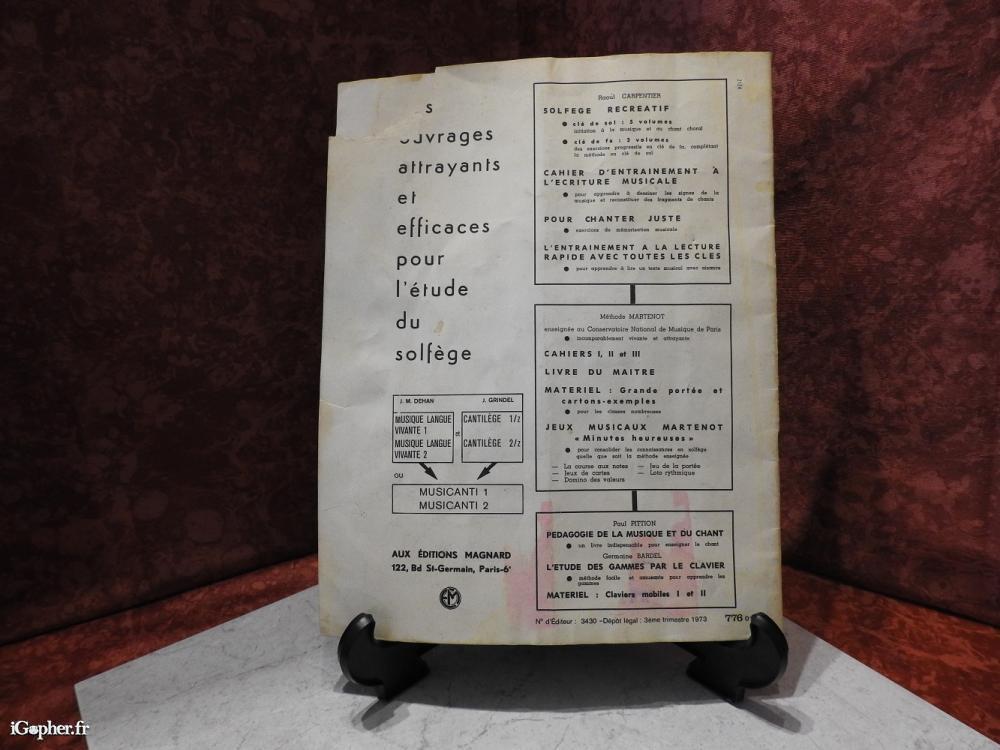 s
uvrages
attrayants
et
efficaces
pour
l'étude
du
solfège
J. M. DEHAN
J. GRINDEL
MUSIQUE LANGUE
VIVANTE 1
MUSIQUE LANGUE
VIVANTE 2
et
CANTILÈGE 1/2
CANTILÈGE 2/2
OU
MUSICANTI 1
MUSICANTI 2
AUX ÉDITIONS MAGNARD
122, Bd St-Germain, Paris-6e
EM
Raoul CARPENTIER
SOLFEGE RECREATIF
● clé de sol : 5 volumes
initiation à la musique et au chant choral
● clé de fa : 3 volumes
des exercices progressifs en clé de fa, complétant
la méthode en clé de sol
CAHIER D'ENTRAINEMENT A
L'ECRITURE MUSICALE
● pour apprendre à dessiner les signes de la
musique et reconstituer des fragments de chants
POUR CHANTER JUSTE
● exercices de mémorisation musicale
L'ENTRAINEMENT A LA LECTURE
RAPIDE AVEC TOUTES LES CLES
● pour apprendre à lire un texte musical avec aisance
Méthode MARTENOT
enseignée au Conservatoire National de Musique de Paris
● incomparablement vivante et attrayante
CAHIERS I, II et III
LIVRE DU MAITRE
MATERIEL : Grande portée et
cartons-exemples
● pour les classes nombreuses
JEUX MUSICAUX MARTENOT
« Minutes heureuses »
● pour consolider les connaissances en solfège
quelle que soit la méthode enseignée
— La course aux notes — Jeu de la portée
— Jeux de cartes — Loto rythmique
— Domino des valeurs
Paul PITTION
PEDAGOGIE DE LA MUSIQUE ET DU CHANT
● un livre indispensable pour enseigner le chant
Germaine BARDEL
L'ETUDE DES GAMMES PAR LE CLAVIER
● méthode facile et amusante pour apprendre les
gammes
MATERIEL : Claviers mobiles I et II
N° d'Éditeur : 3430 - Dépôt légal : 3ème trimestre 1973 776
iGopher.fr